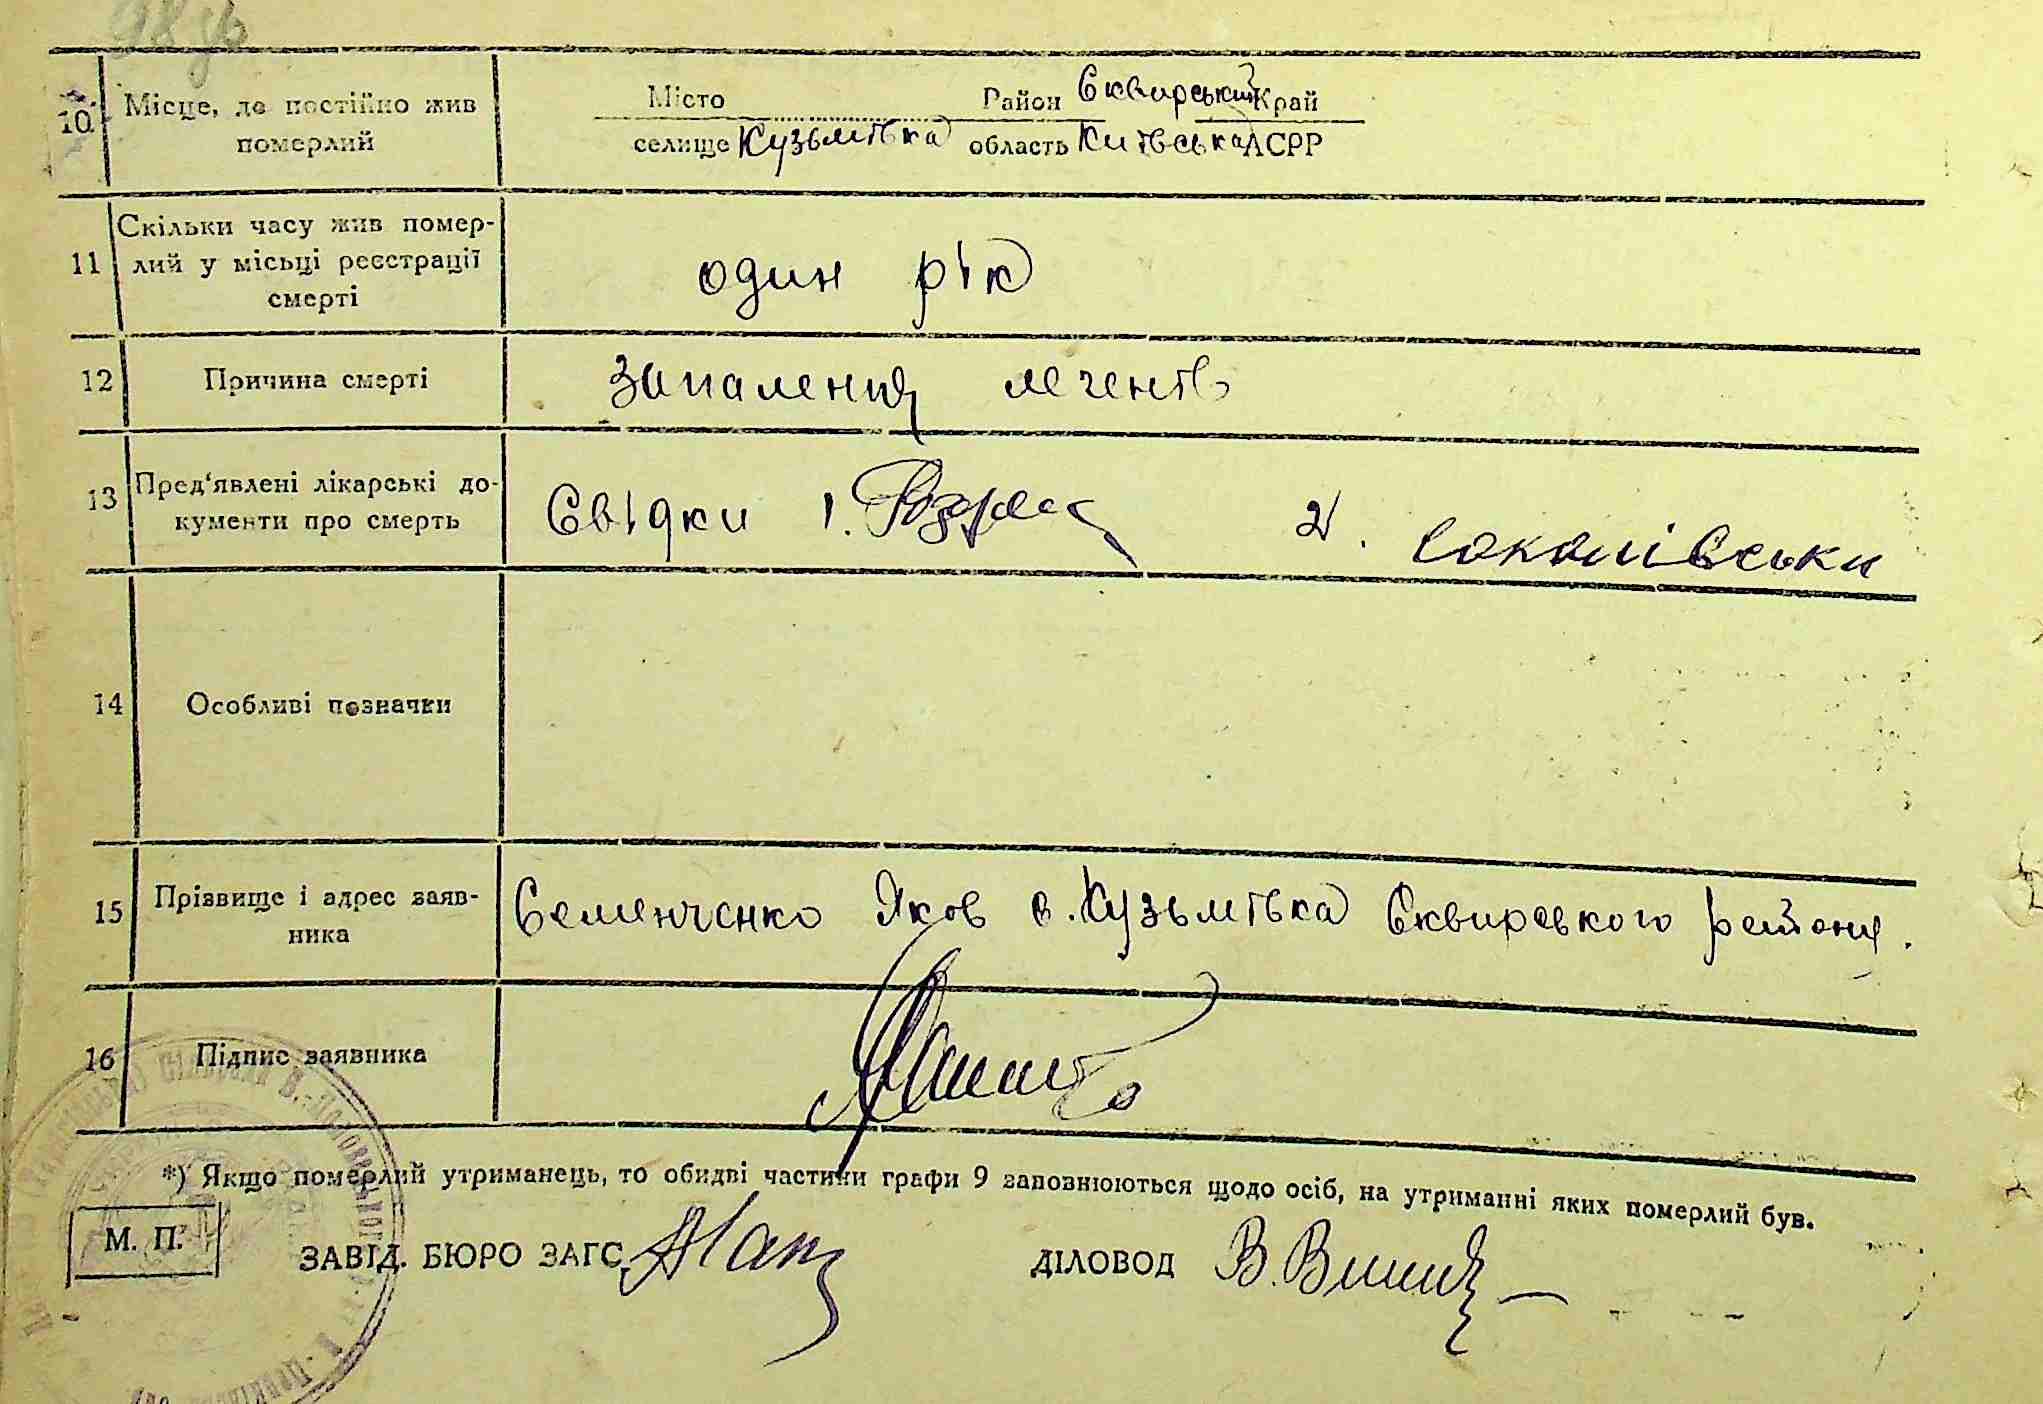 10. Місце, де постійно жив померлий
Місто Район Сквирський Край
селище Кузьмівка область Київська АСРР
11 Скільки часу жив помер-
лий у місьці реєстрації
смерті
один рік
12 Причина смерті
запалення легенів
13 Пред'явлені лікарські до-
кументи про смерть
Свідки 1. 2. Соколівськи
14 Особливі позначки
15 Прізвище і адрес заяв-
ника
Семенченко Яков с. Кузьмівка Сквирського району.
16 Підпис заявника
*) Якщо померлий утриманець, то обидві частини графи 9 заповнюються щодо осіб, на утриманні яких померлий був.
М. П.
ЗАВІД. БЮРО ЗАГС ДІЛОВОД